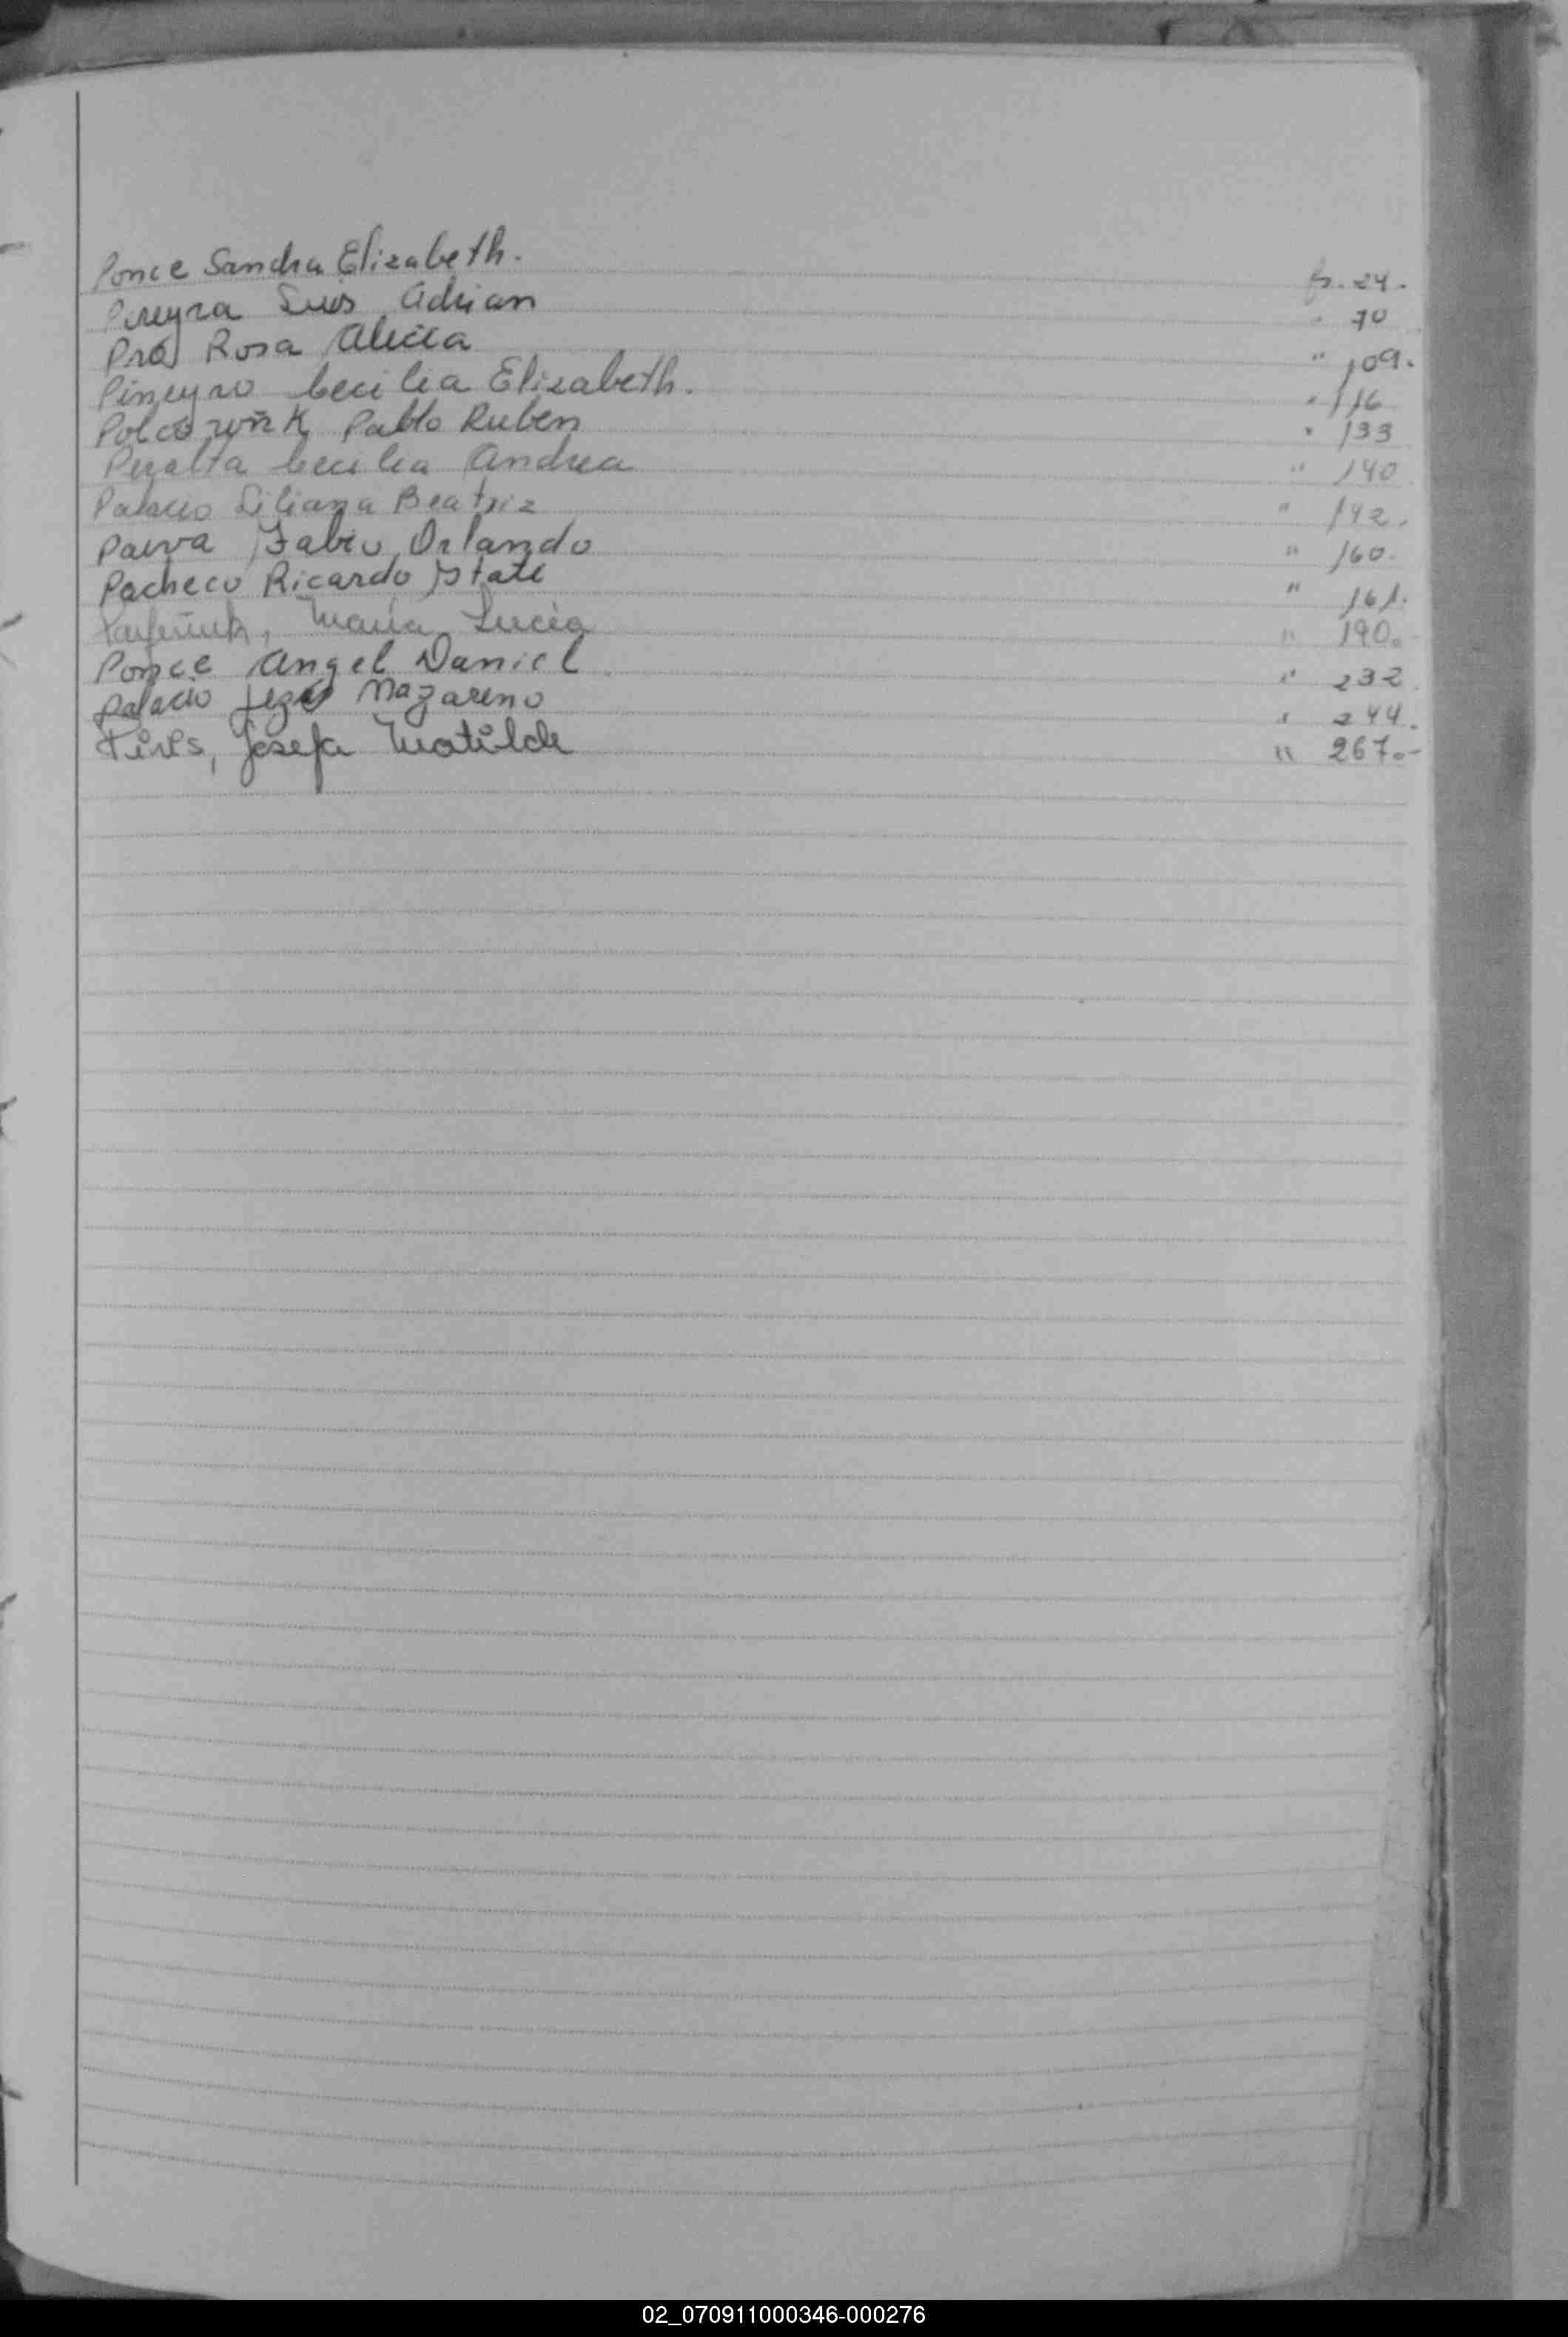 Ponce Sandra Elizabeth. fs. 24.-
Pereyra Luis Adrian " 70
Pra Rosa Alicia " 109.
Pineyro Cecilia Elizabeth. " 116
Pablo Ruben " 133
Peralta Cecilia Andrea " 140
Palacio Liliana Beatriz " 142.
Paiva Fabio Orlando " 160.
Pacheco Ricardo " 161.
María Lucía " 190.-
Ponce Angel Daniel " 232
Palacio Nazareno " 244.
Pires, Josefa Matilde " 267.-
02_070911000346-000276